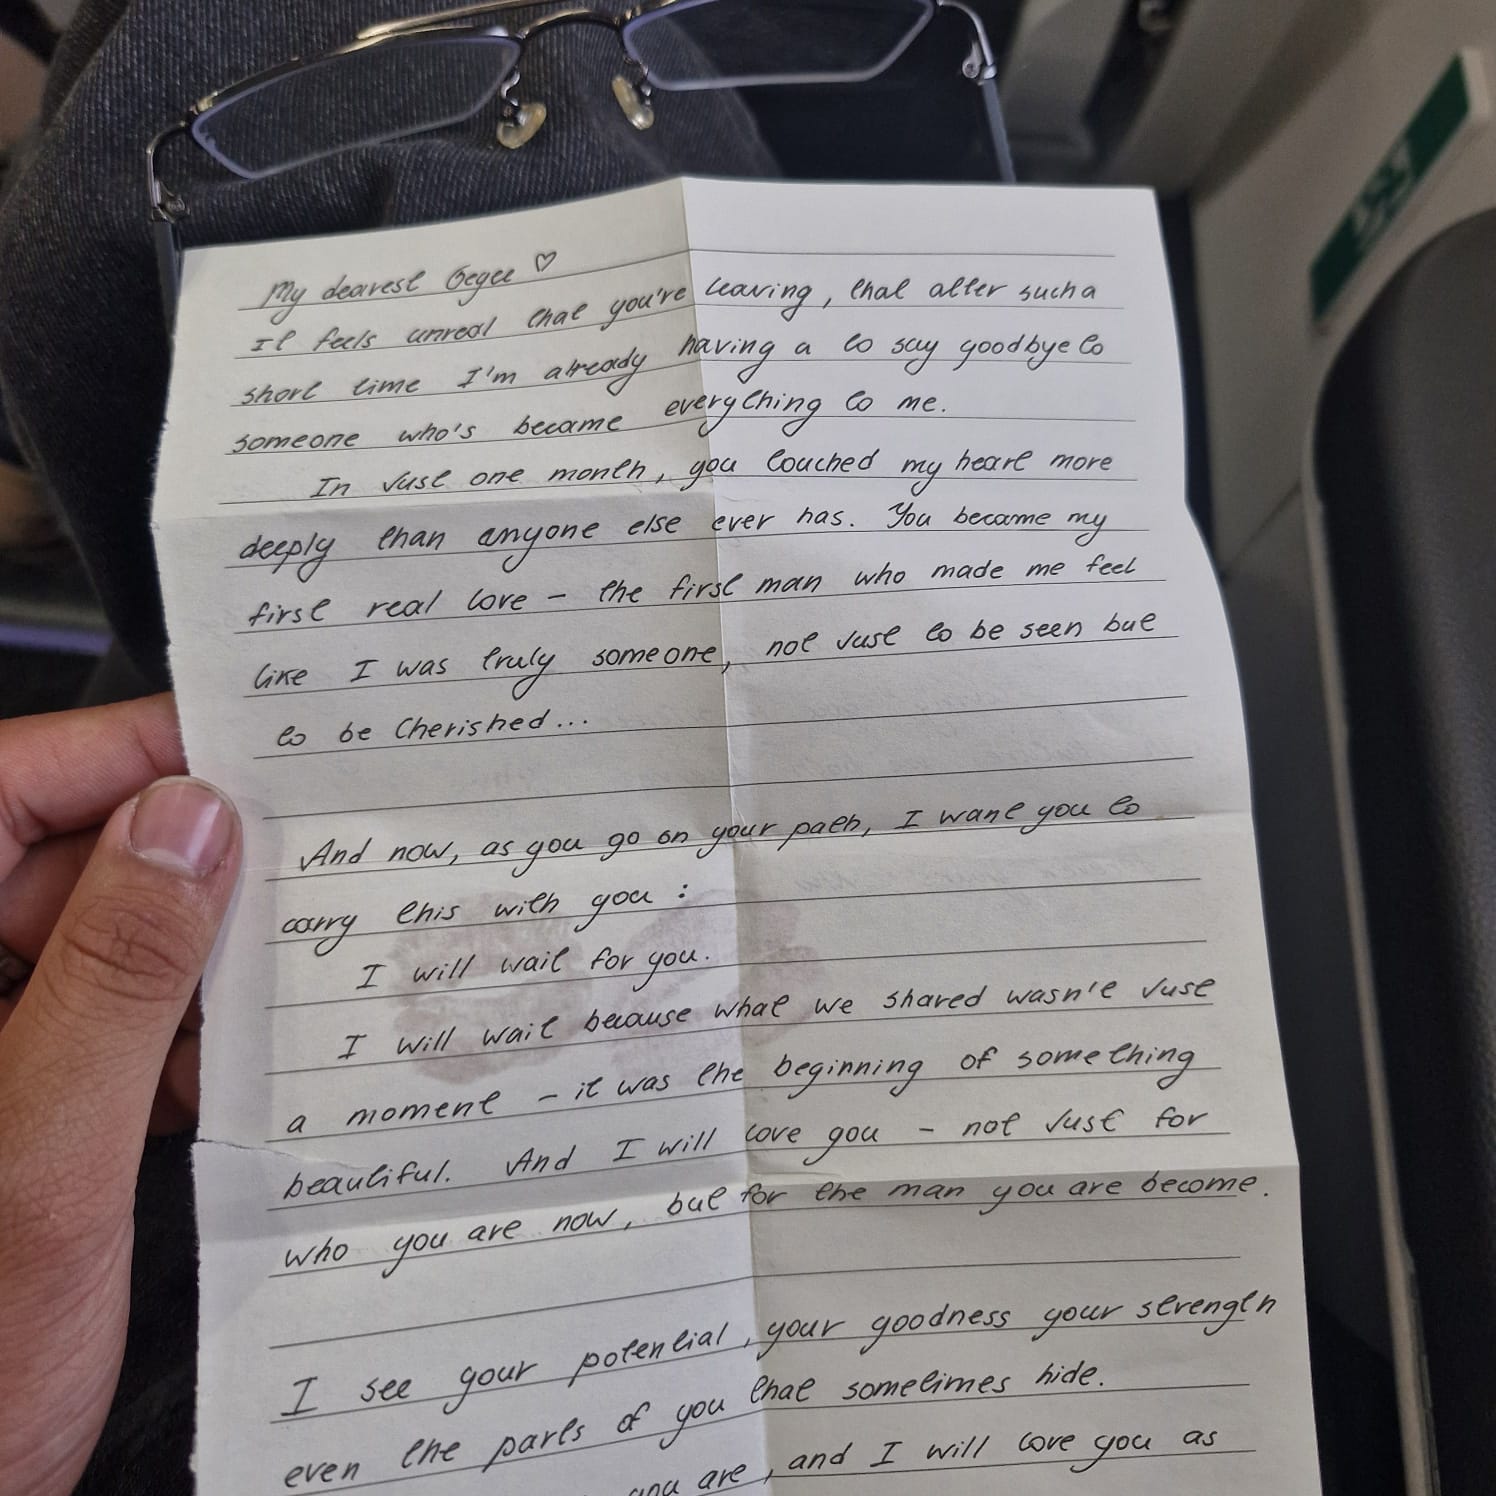 My dearest Gegee ♡
It feels unreal that you're leaving, that after such a
short time I'm already having a to say goodbye to
someone who's became everything to me.
In Just one month, you touched my heart more
deeply than anyone else ever has. You became my
first real love – the first man who made me feel
like I was truly someone, not Just to be seen but
to be Cherished...
And now, as you go on your path, I want you to
carry this with you :
I will wait for you.
I will wait because what we shared wasn't Just
a moment – it was the beginning of something
beautiful. And I will love you – not Just for
who you are now, but for the man you are become.
I see your potential, your goodness your strength
even the parts of you that sometimes hide.
you are, and I will love you as